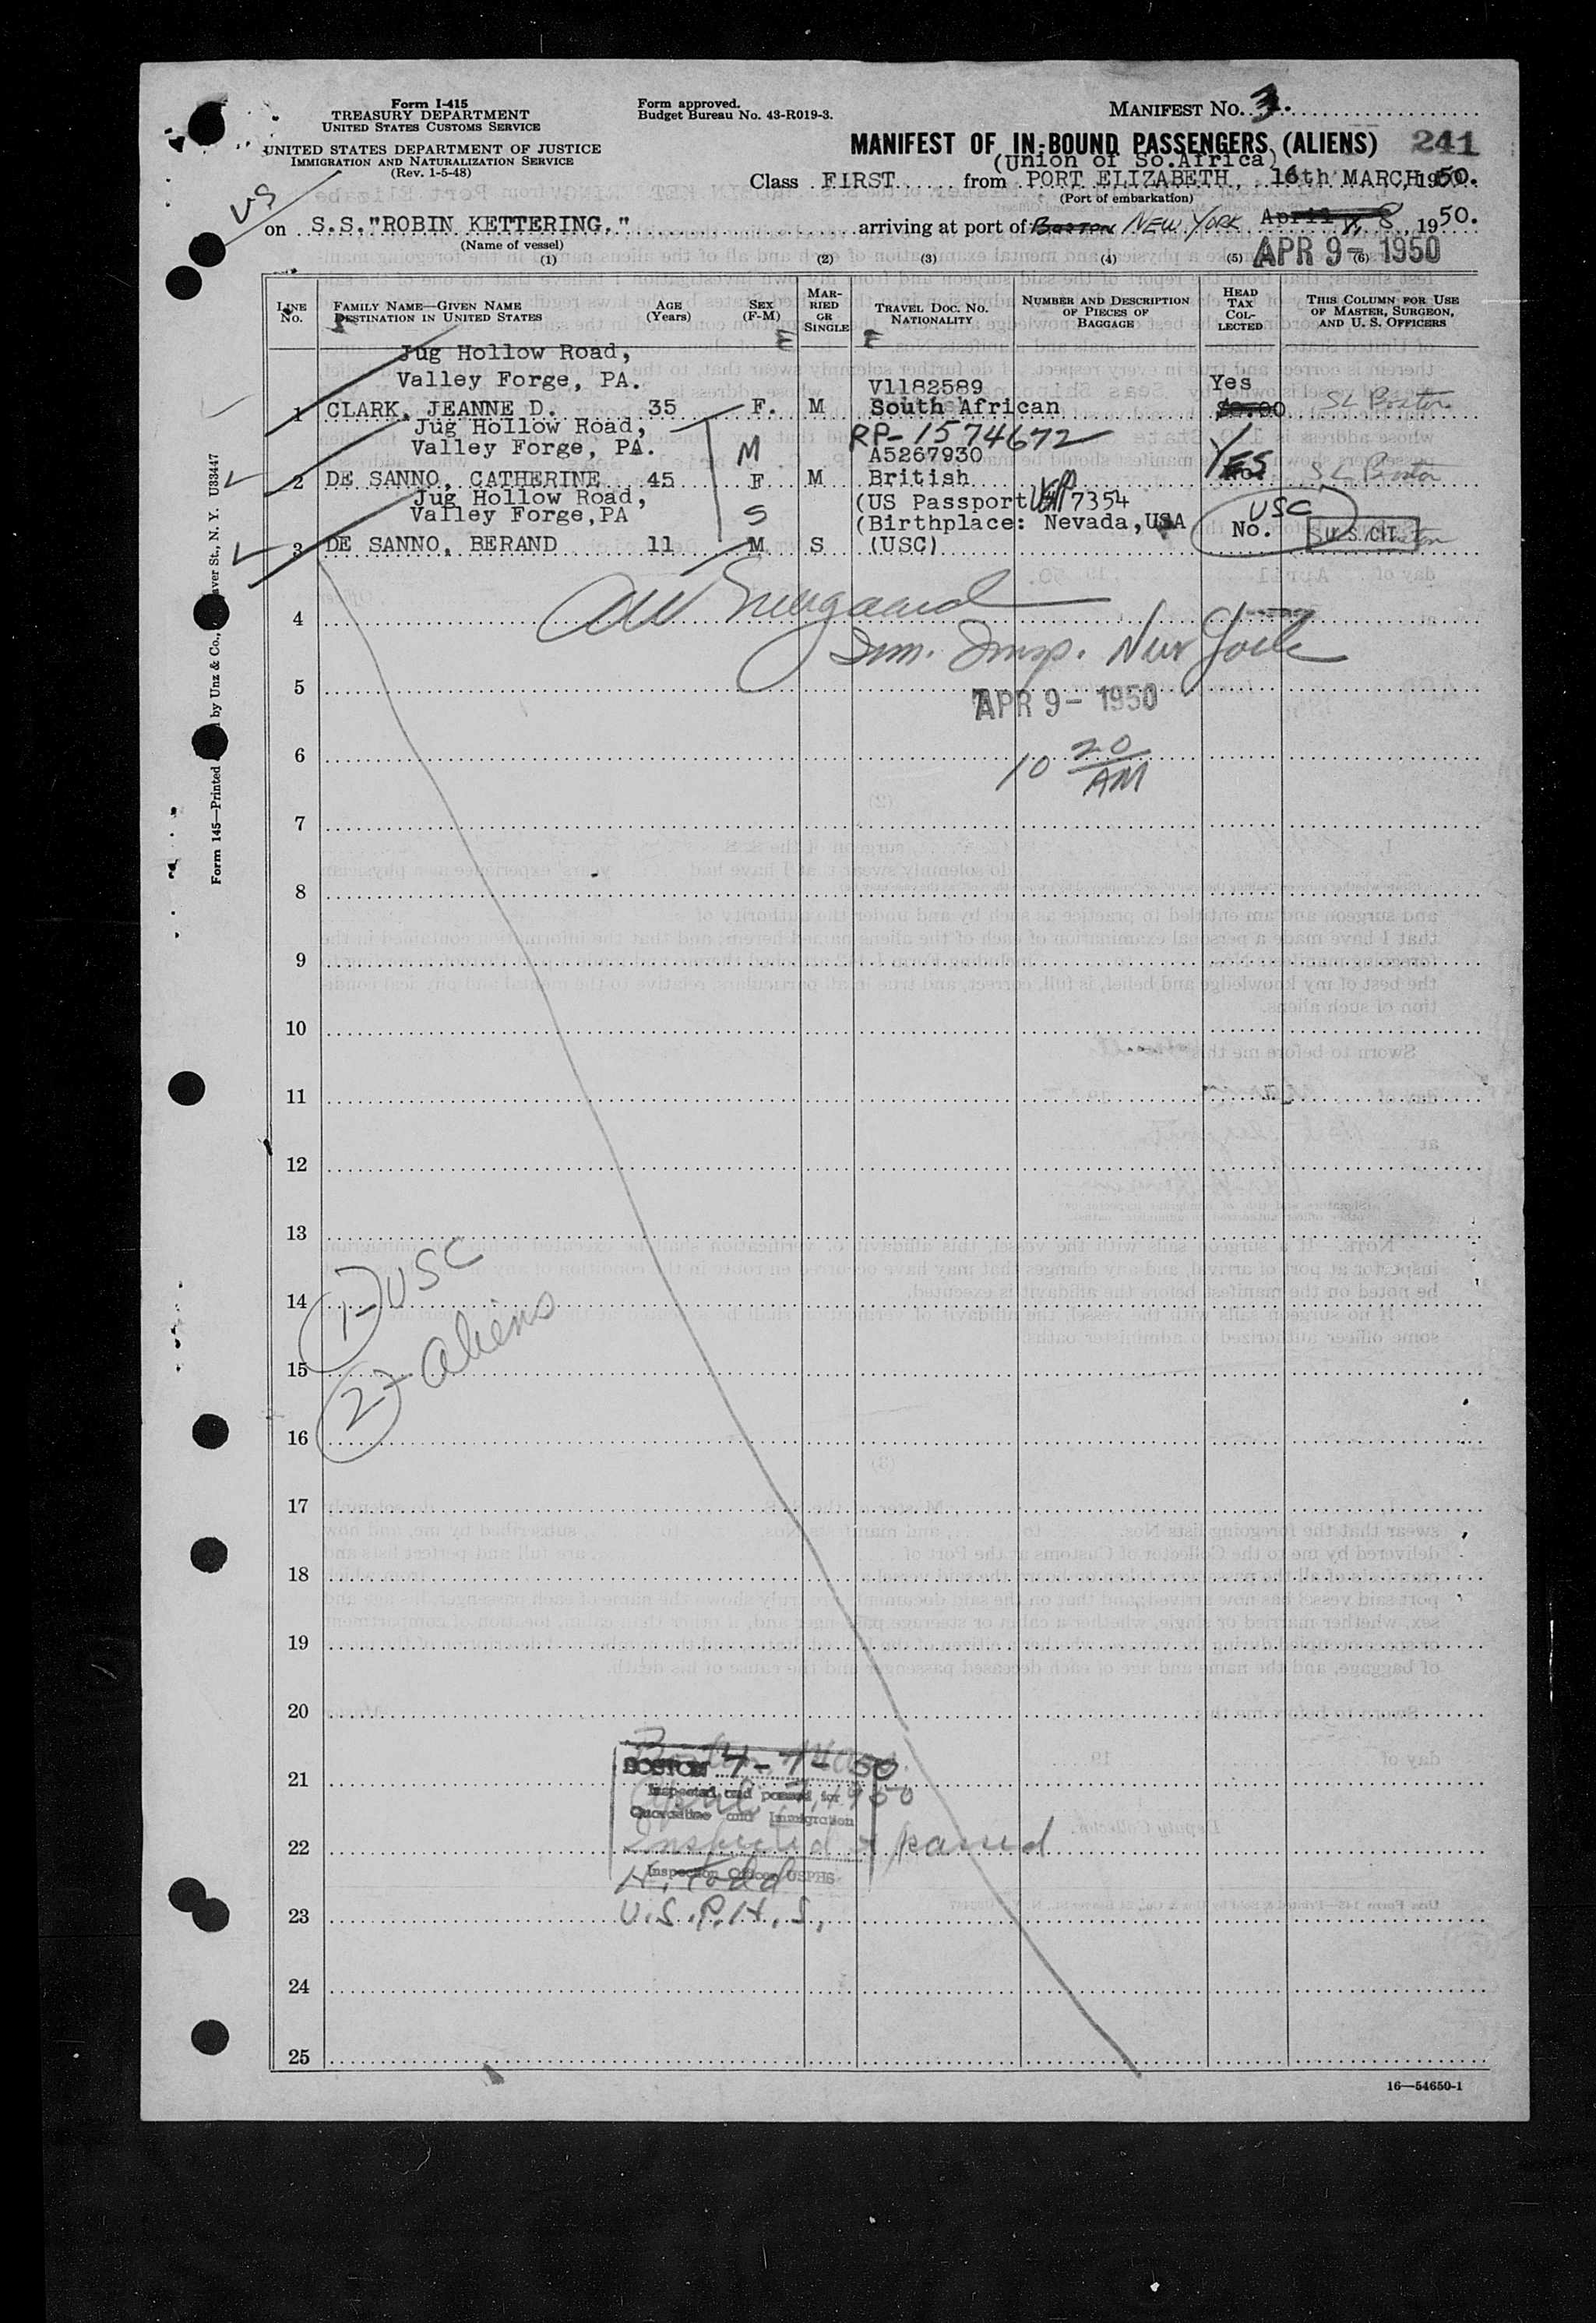 Form I-415
TREASURY DEPARTMENT
UNITED STATES CUSTOMS SERVICE
UNITED STATES DEPARTMENT OF JUSTICE
IMMIGRATION AND NATURALIZATION SERVICE
(Rev. 1-5-48)
Form approved.
Budget Bureau No. 43-R019-3.
MANIFEST NO. 3.
MANIFEST OF IN-BOUND PASSENGERS (ALIENS) 241
(Union of So.Africa)
Class FIRST from PORT ELIZABETH, 16th MARCH, 1950.
(Port of embarkation)
US
on S.S."ROBIN KETTERING." arriving at port of Boston NEW YORK April 8, 1950.
(Name of vessel)
APR 9- 1950
(1) (2) (3) (4) (5) (6)
LINE No.
FAMILY NAME—GIVEN NAME
DESTINATION IN UNITED STATES
AGE (Years)
SEX (F-M)
MARRIED OR SINGLE
TRAVEL DOC. NO. NATIONALITY
NUMBER AND DESCRIPTION OF PIECES OF BAGGAGE
HEAD TAX COLLECTED
THIS COLUMN FOR USE OF MASTER, SURGEON, AND U. S. OFFICERS
Jug Hollow Road,
Valley Forge, PA. V1182589 Yes
1 CLARK, JEANNE D. 35 F. M South African $8.00 SL Boston
Jug Hollow Road, RP-1574672
Valley Forge, PA. M A5267930 YES
2 DE SANNO, CATHERINE 45 F M British No. SL Boston
Jug Hollow Road, (US Passport 7354
Valley Forge,PA S (Birthplace: Nevada,USA USC
3 DE SANNO, BERAND 11 M S (USC) No. U.S. CIT.
4
Imm. Insp. New York
5
APR 9- 1950
6
10 20 AM
7
8
9
10
11
12
13
1- USC
14
2- aliens
15
16
17
18
19
20
BOSTON 4-7-50
21
Inspected and passed for
Quarantine and Immigration
22
Inspected & passed
Inspection Officer USPHS
H. Todd
23
U.S.P.H.S.
24
25
16—54650-1
Form 145—Printed by Unz & Co., aver St., N. Y. U33447